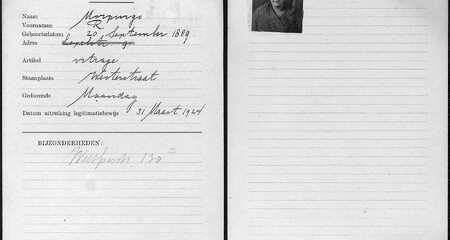 Naam Morpurgo
Voornamen R
Geboortedatum 20 September 1889
Adres
Artikel vitrage
Staanplaats Westerstraat
Gedurende Maandag
Datum uitreiking legitimatiebewijs 31 Maart 1924
BIJZONDERHEDEN:
Weesperstr. 130